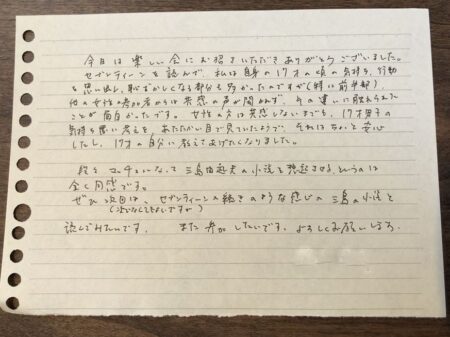 今日は楽しい会にお招きいただきありがとうございました。
セブンティーンを読んで、私は自身の17才の頃の気持ち、行動
を思い出し、恥ずかしくなる部分も多かったのですが(特に前半部)、
他の女性の参加者からは共感の声が聞かれず、その違いに触れられた
ことが面白かったです。女性の方は共感しないまでも、17才男子の
気持ち悪い考えを、あたたかい目で見ていたようで、それはちょっと安心
したし、17才の自分に教えてあげたくなりました。
段々マッチョになって三島由紀夫の小説を想起させるというのは
全く同感です。
ぜひ次回は、セブンティーンの続きのような感じの三島の小説を
読んでみたいです。 また参加したいです。よろしくお願いします。